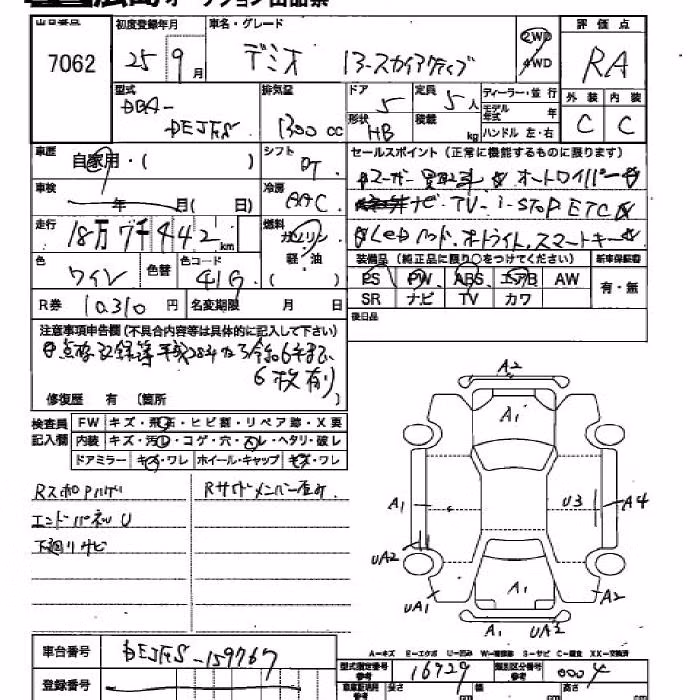 オークション出品票
出品番号 7062
初度登録年月 25 9月
車名・グレード デミオ 13-スカイアクティブ
2WD
4WD
評価点 RA
型式 DBA- DEJFS
排気量 1300cc
ドア 5
定員 5人
ディーラー・並行
モデル年式 年
ハンドル 左・右
形状 HB
積載 kg
外装 C
内装 C
車歴 自家用・( )
シフト
セールスポイント（正常に機能するものに限ります）
車検 年 月( 日)
冷房 AAC
オートワイパー
ナビ TV i-STOP ETC
走行 18万7千442km
燃料 ガソリン 軽油
LED ヘッド、オートライト、スマートキー
色 ワイン
色替
色コード 41G
装備品（純正品に限り○をつけてください）
新車保証書 有・無
PS PW ABS エアB AW
SR ナビ TV カワ
R券 10310円
名変期限 月 日
後日品
注意事項申告欄（不具合内容等は具体的に記入して下さい）
点検記録簿平成28年から令和6年まで、
6枚有り
修復歴 有 〔箇所 〕
検査員記入欄
FW キズ・飛石・ヒビ割・リペア跡・X要
内装 キズ・汚レ・コゲ・穴・スレ・ヘタリ・破レ
ドアミラー キズ・ワレ ホイール・キャップ キズ・ワレ
エンドパネル U
下廻りサビ
Rサイドメンバー歪み
A2
A1
A1
U3
A4
UA2
UA1
A1
A2
A1
UA2
A－キズ E－エクボ U－凹み W－補修跡 S－サビ C－腐食 XX－交換済
車台番号 DEJFS-159767
型式指定番号 16929
類別区分番号 0004
登録番号
長さ cm 幅 cm 高さ cm